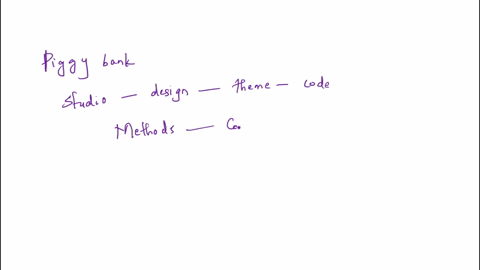 Piggy bank
Studio — design — theme — code
Methods — Co